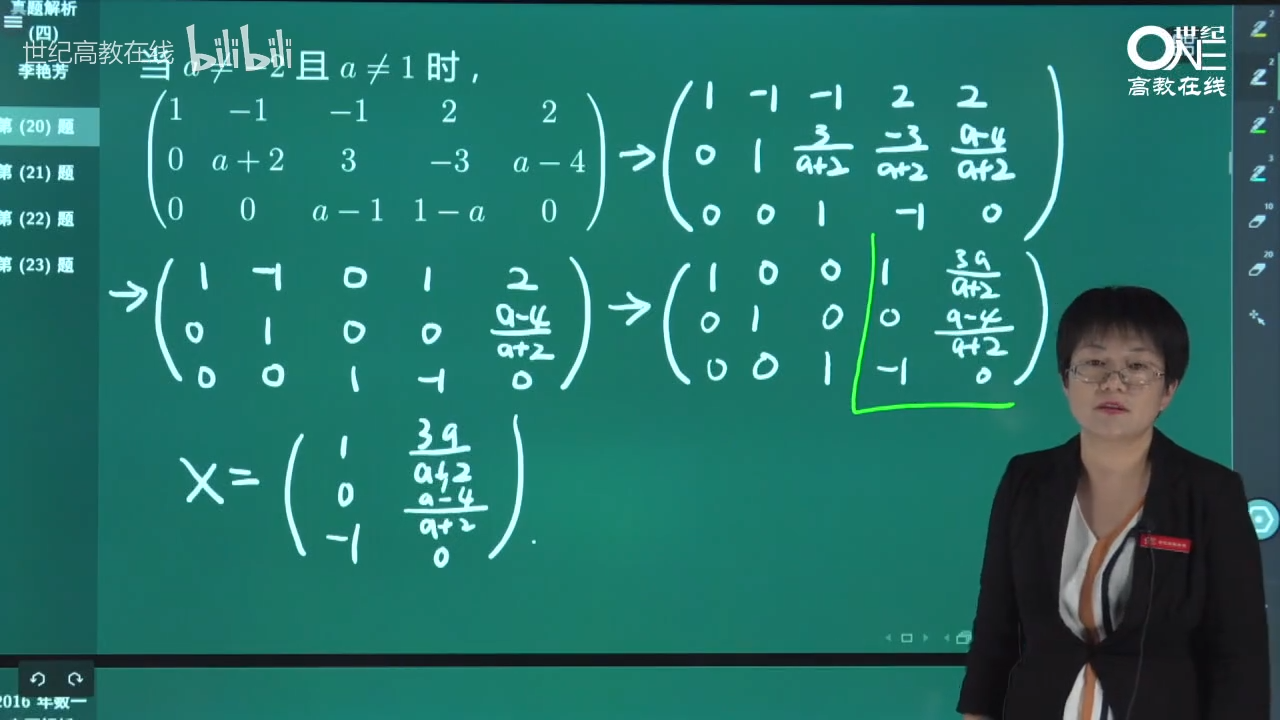 真题解析
(四)
世纪高教在线 bilibili
李艳芳
第 (20) 题
第 (21) 题
第 (22) 题
第 (23) 题
当 a ≠ -2 且 a ≠ 1 时，
1 -1 -1 2 2
0 a + 2 3 -3 a - 4
0 0 a - 1 1 - a 0
→ 1 -1 -1 2 2
0 1 3/(a+2) -3/(a+2) (a-4)/(a+2)
0 0 1 -1 0
→ 1 -1 0 1 2
0 1 0 0 (a-4)/(a+2)
0 0 1 -1 0
→ 1 0 0 1 3a/(a+2)
0 1 0 0 (a-4)/(a+2)
0 0 1 -1 0
X = 1 3a/(a+2)
0 (a-4)/(a+2)
-1 0 .
世纪
ONE
高教在线
2
2
2
3
10
20
2016 年数一